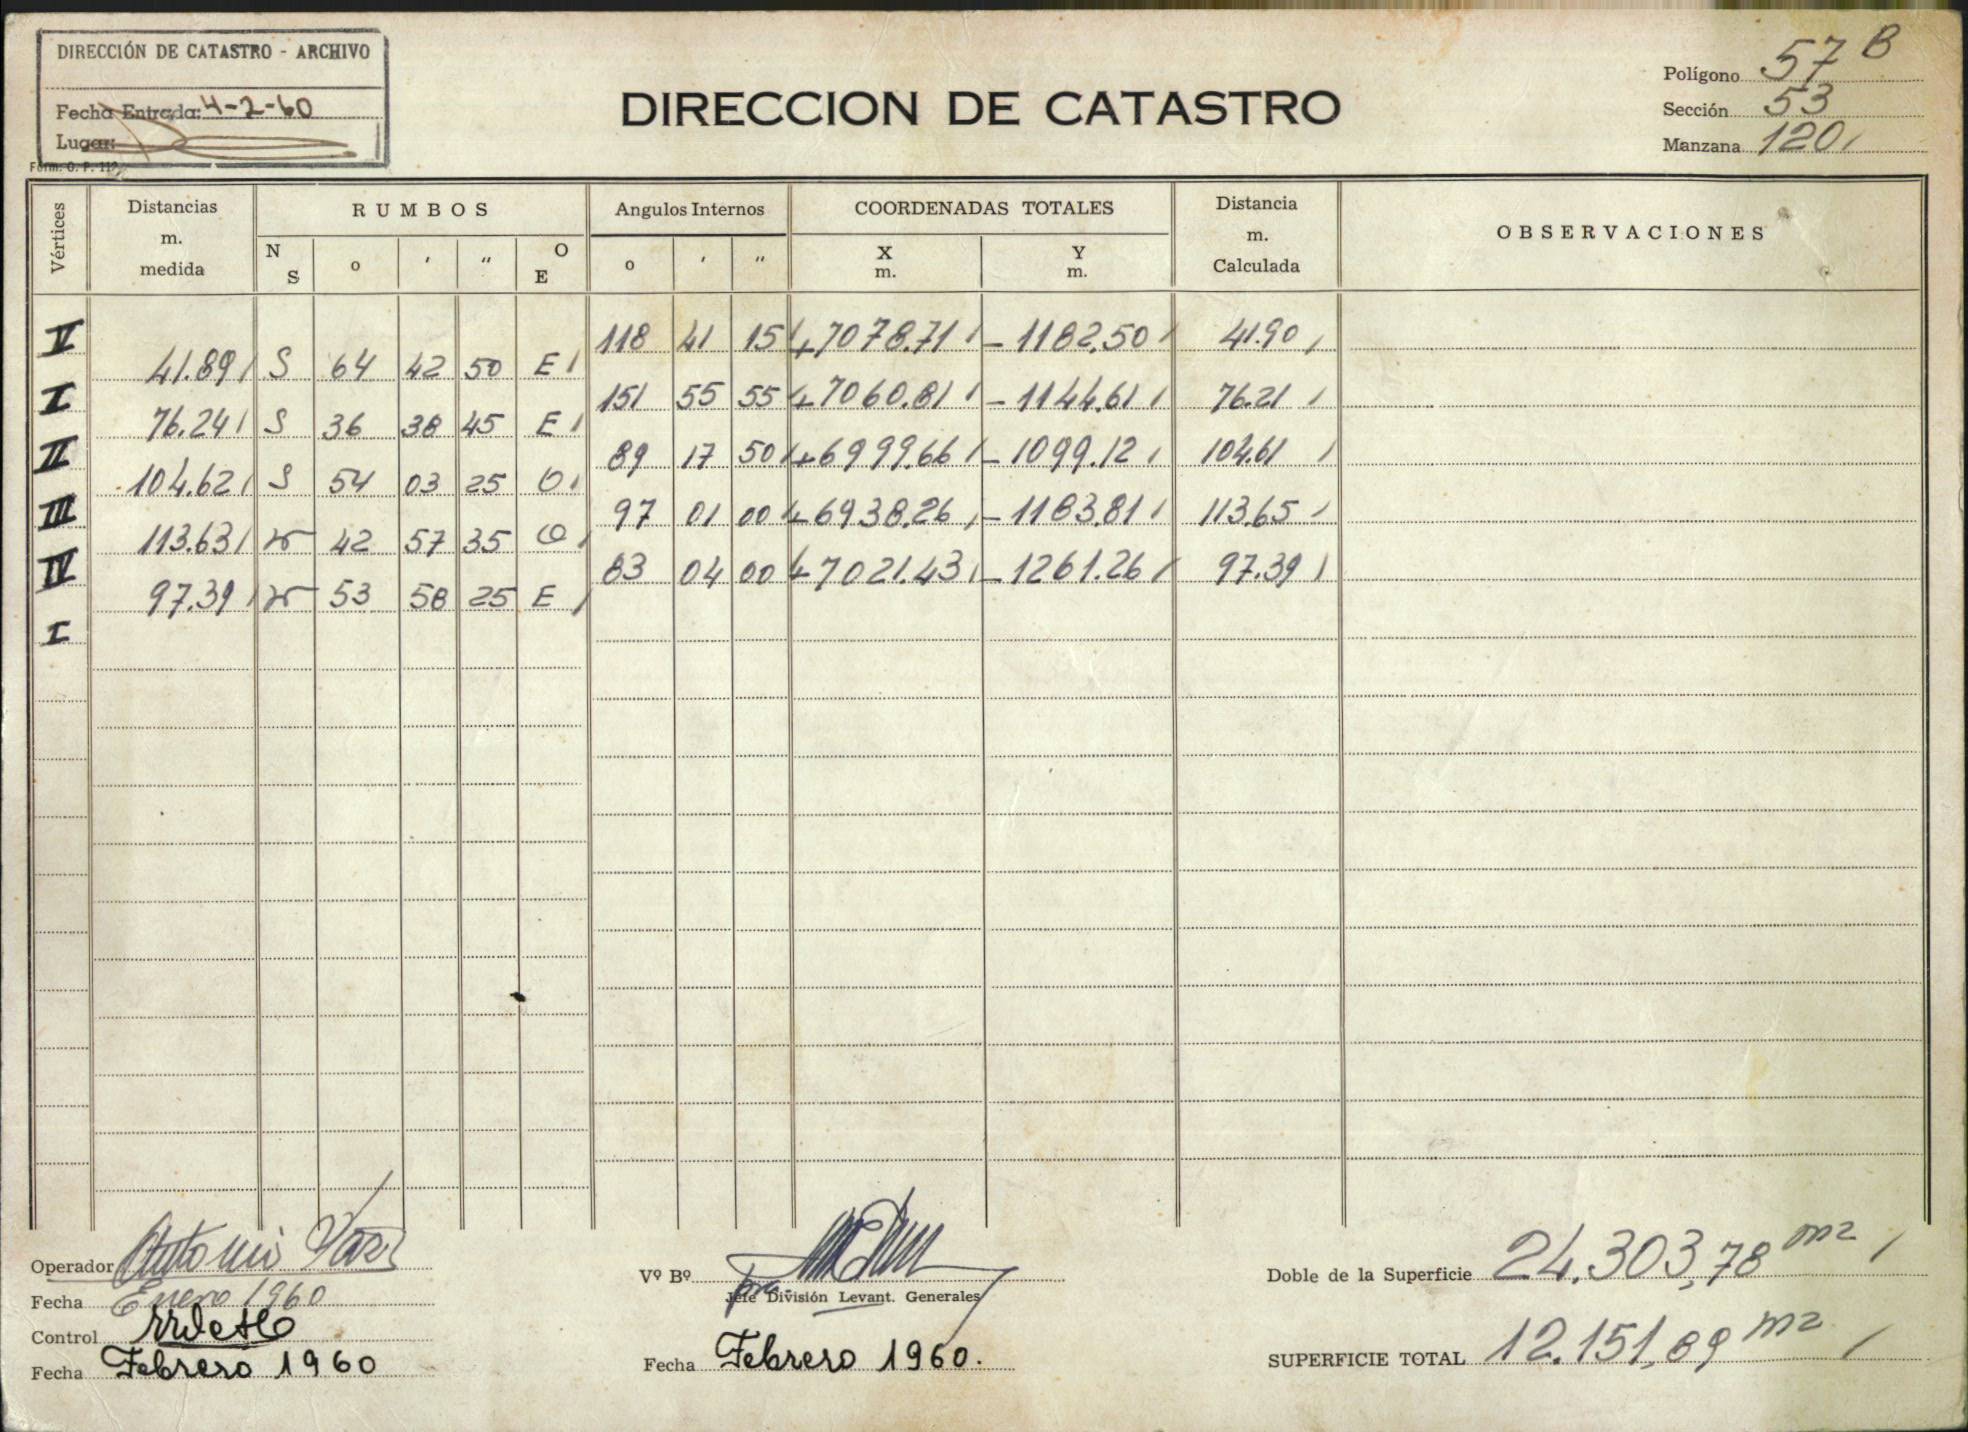 DIRECCIÓN DE CATASTRO - ARCHIVO
Fecha Entrada: 4-2-60
Lugar:
Form. O. P. 112
DIRECCION DE CATASTRO
Polígono 57 B
Sección 53
Manzana 120
Vértices
Distancias
m.
medida
RUMBOS
N
S
o ' "
O
E
Angulos Internos
o ' "
COORDENADAS TOTALES
X
m.
Y
m.
Distancia
m.
Calculada
OBSERVACIONES
V 118 41 15 +7078.71 -1182.50 41.90
41.89 S 64 42 50 E
I 151 55 55 +7060.81 -1144.61 76.21
76.24 S 36 38 45 E
II 89 17 50 +6999.66 -1099.12 104.61
104.62 S 54 03 25 O
III 97 01 00 +6938.26 -1183.81 113.65
113.63 N 42 57 35 O
IV 83 04 00 +7021.43 -1261.26 97.39
97.39 N 53 58 25 E
I
Operador Antonio
Fecha Enero 1960
Control
Fecha Febrero 1960
Vº Bº
Jefe División Levant. Generales
Fecha Febrero 1960.
Doble de la Superficie 24.303,78 m2
SUPERFICIE TOTAL 12.151,89 m2